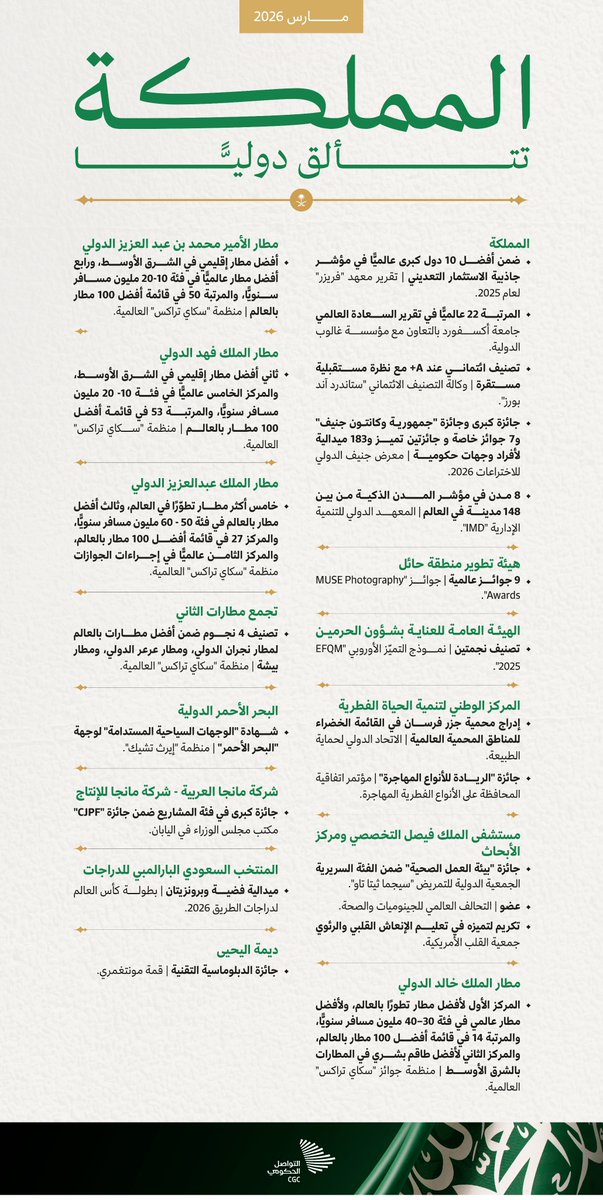 مارس 2026
المملكة
تتألق دوليًّا
المملكة
ضمن أفضل 10 دول كبرى عالميًّا في مؤشر
جاذبية الاستثمار التعديني | تقرير معهد "فريزر"
لعام 2025.
المرتبة 22 عالميًّا في تقرير السعادة العالمي
جامعة أكسفورد بالتعاون مع مؤسسة غالوب
الدولية.
تصنيف ائتماني عند A+ مع نظرة مستقبلية
مستقرة | وكالة التصنيف الائتماني "ستاندرد آند
بورز".
جائزة كبرى وجائزة "جمهورية وكانتون جنيف"
و7 جوائز خاصة و جائزتين تميز و183 ميدالية
لأفراد وجهات حكومية | معرض جنيف الدولي
للاختراعات 2026.
8 مدن في مؤشر المدن الذكية من بين
148 مدينة في العالم | المعهد الدولي للتنمية
الإدارية "IMD".
هيئة تطوير منطقة حائل
9 جوائز عالمية | جوائز "MUSE Photography
Awards".
الهيئة العامة للعناية بشؤون الحرمين
تصنيف نجمتين | نموذج التميّز الأوروبي "EFQM
2025".
المركز الوطني لتنمية الحياة الفطرية
إدراج محمية جزر فرسان في القائمة الخضراء
للمناطق المحمية العالمية | الاتحاد الدولي لحماية
الطبيعة.
جائزة "الريادة للأنواع المهاجرة" | مؤتمر اتفاقية
المحافظة على الأنواع الفطرية المهاجرة.
مستشفى الملك فيصل التخصصي ومركز
الأبحاث
جائزة "بيئة العمل الصحية" ضمن الفئة السريرية
الجمعية الدولية للتمريض "سيجما ثيتا تاو".
عضو | التحالف العالمي للجينوميات والصحة.
تكريم لتميزه في تعليم الإنعاش القلبي والرئوي
جمعية القلب الأمريكية.
مطار الملك خالد الدولي
المركز الأول لأفضل مطار تطورًا بالعالم، ولأفضل
مطار عالمي في فئة 30–40 مليون مسافر سنويًّا،
والمرتبة 14 في قائمة أفضل 100 مطار بالعالم،
والمركز الثاني لأفضل طاقم بشري في المطارات
بالشرق الأوسط | منظمة جوائز "سكاي تراكس"
العالمية.
مطار الأمير محمد بن عبد العزيز الدولي
أفضل مطار إقليمي في الشرق الأوسط، ورابع
أفضل مطار عالميًّا في فئة 10-20 مليون مسافر
سنويًّا، والمرتبة 50 في قائمة أفضل 100 مطار
بالعالم | منظمة "سكاي تراكس" العالمية.
مطار الملك فهد الدولي
ثاني أفضل مطار إقليمي في الشرق الأوسط،
والمركز الخامس عالميًّا في فئة 10- 20 مليون
مسافر سنويًّا، والمرتبة 53 في قائمة أفضل
100 مطار بالعالم | منظمة "سكاي تراكس"
العالمية.
مطار الملك عبدالعزيز الدولي
خامس أكثر مطار تطوّرًا في العالم، وثالث أفضل
مطار بالعالم في فئة 50 - 60 مليون مسافر سنويًّا،
والمركز 27 في قائمة أفضل 100 مطار بالعالم،
والمركز الثامن عالميًّا في إجراءات الجوازات
منظمة "سكاي تراكس" العالمية.
تجمع مطارات الثاني
تصنيف 4 نجوم ضمن أفضل مطارات بالعالم
لمطار نجران الدولي، ومطار عرعر الدولي، ومطار
بيشة | منظمة "سكاي تراكس" العالمية.
البحر الأحمر الدولية
شهادة "الوجهات السياحية المستدامة" لوجهة
"البحر الأحمر" | منظمة "إيرث تشيك".
شركة مانجا العربية - شركة مانجا للإنتاج
جائزة كبرى في فئة المشاريع ضمن جائزة "CJPF"
مكتب مجلس الوزراء في اليابان.
المنتخب السعودي البارالمبي للدراجات
ميدالية فضية وبرونزيتان | بطولة كأس العالم
لدراجات الطريق 2026.
ديمة اليحيى
جائزة الدبلوماسية التقنية | قمة مونتغمري.
التواصل
الحكومي
CGC